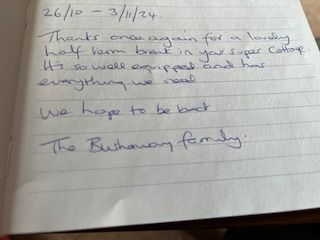 26/10 - 3/11/24.
Thanks once again for a lovely
half term break in your super Cottage.
It's so well equipped and has
everything we need
We hope to be back
The Bushaway family.